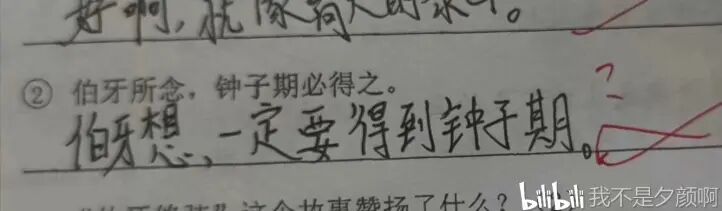 好啊,就像
② 伯牙所念,钟子期必得之。
伯牙想,一定要得到钟子期。
?
这个故事赞扬了什么?
bilibili 我不是夕颜啊